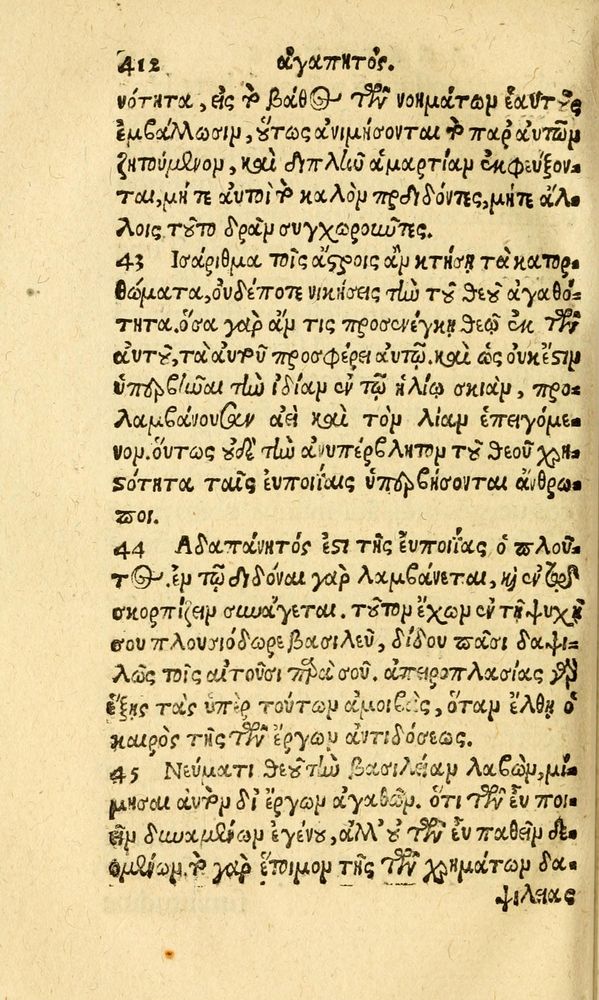 412 ἀγαπητός.
νότητα, εἰς τὸ βάθος τῶν νοημάτων ἑαυτοὺς
ἐμβάλλωσιν, οὕτως ἀνιμήσονται τὸ παρ' αὐτῶν
ζητούμενον, καὶ διπλῆν ἁμαρτίαν ἐκφεύξον-
ται, μήτε αὐτοὶ τὸ καλὸν προδιδόντες, μήτε ἄλ-
λοις τοῦτο δρᾶν συγχωροῦντες.
43 Ισάριθμα τοῖς ἄστροις ἂν κτήσῃ τὰ κατορ-
θώματα, οὐδέποτε νικήσεις τὴν τοῦ θεοῦ ἀγαθό-
τητα. ὅσα γὰρ ἄν τις προσενέγκῃ θεῷ ἐκ τῶν
αὐτοῦ, τὰ αὐτοῦ προσφέρει αὐτῷ. καὶ ὡς οὐκ ἔστιν
ὑπερβῆναι τὴν ἰδίαν ἐν τῷ ἡλίῳ σκιάν, προ-
λαμβάνουσαν ἀεὶ καὶ τὸν λίαν ἐπειγόμε-
νον. οὕτως οὐδὲ τὴν ἀνυπέρβλητον τοῦ θεοῦ χρη-
στότητα ταῖς εὐποιΐαις ὑπερβήσονται ἄνθρω-
ποι.
44 Αδαπάνητός ἐστι τῆς εὐποιΐας ὁ πλοῦ-
τος. ἐν τῷ διδόναι γὰρ λαμβάνεται, καὶ ἐν τῷ
σκορπίζειν συνάγεται. τοῦτον ἔχων ἐν τῇ ψυχῇ
σου πλουσιόδωρε βασιλεῦ, δίδου πᾶσι δαψι-
λῶς τοῖς αἰτοῦσι παρὰ σοῦ. ἀπειροπλασίας γὰρ
ἕξῃς τὰς ὑπὲρ τούτων ἀμοιβάς, ὅταν ἔλθῃ ὁ
καιρὸς τῆς τῶν ἔργων ἀντιδόσεως.
45 Νεύματι θεοῦ τὴν βασιλείαν λαβών, μί-
μησαι αὐτὸν δι' ἔργων ἀγαθῶν. ὅτι τῶν εὖ ποι-
εῖν δυναμένων ἐγένου, ἀλλ' οὐ τῶν εὖ παθεῖν δε-
ομένων. τὸ γὰρ ἕτοιμον τῆς τῶν χρημάτων δα-
ψιλείας